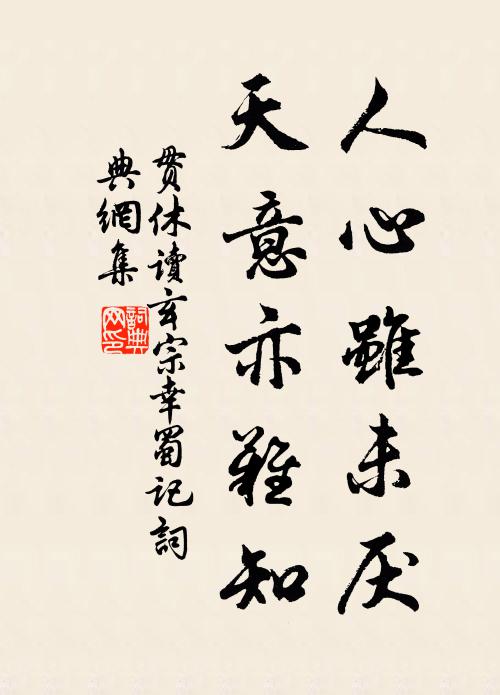 人心雖未厌
天意亦難知
贯休讀玄宗幸蜀记詞
典網集
詞典
网印